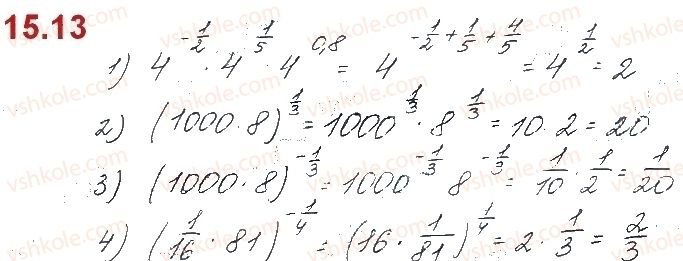 15.13
1) 4^{-1/2} · 4^{1/5} · 4^{0,8} = 4^{-1/2 + 1/5 + 4/5} = 4^{1/2} = 2
2) (1000·8)^{1/3} = 1000^{1/3} · 8^{1/3} = 10·2 = 20
3) (1000·8)^{-1/3} = 1000^{-1/3} 8^{-1/3} = 1/10 · 1/2 = 1/20
4) (1/16 · 81)^{-1/4} = (16 · 1/81)^{1/4} = 2 · 1/3 = 2/3